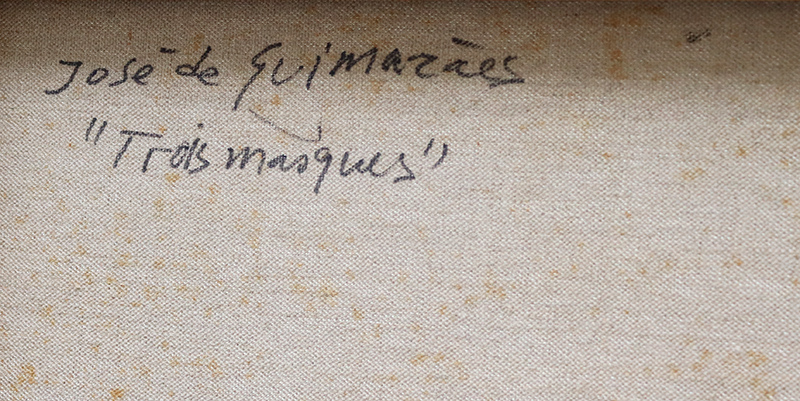 José de Guimarães
"Trois masques"